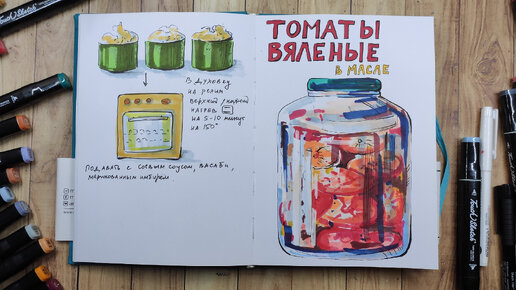 В духовку
на релит
верхний/нижний
нагрев
на 5-10 минут
на 150°
Подавать с соевым соусом, васаби,
маринованным имбирем
ТОМАТЫ
ВЯЛЕНЫЕ
В МАСЛЕ
Touch Sketch
Touch Sketch